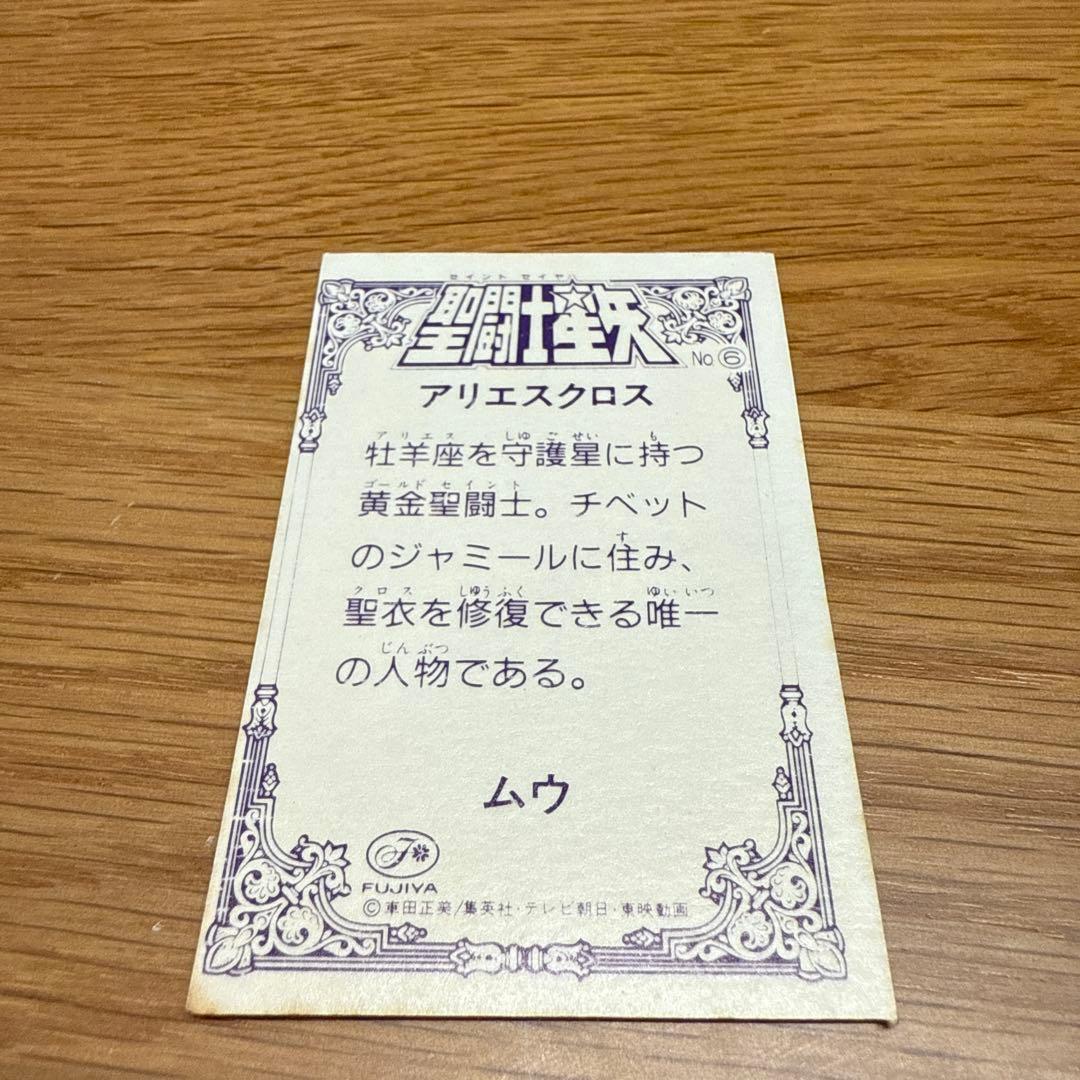 セイント セイヤ
聖闘士星矢
No.⑥
アリエスクロス
アリエス しゅごせい も
牡羊座を守護星に持つ
ゴールドセイント
黄金聖闘士。チベット
す
のジャミールに住み、
クロス しゅうふく ゆいいつ
聖衣を修復できる唯一
じんぶつ
の人物である。
ムウ
F
FUJIYA
©車田正美/集英社・テレビ朝日・東映動画